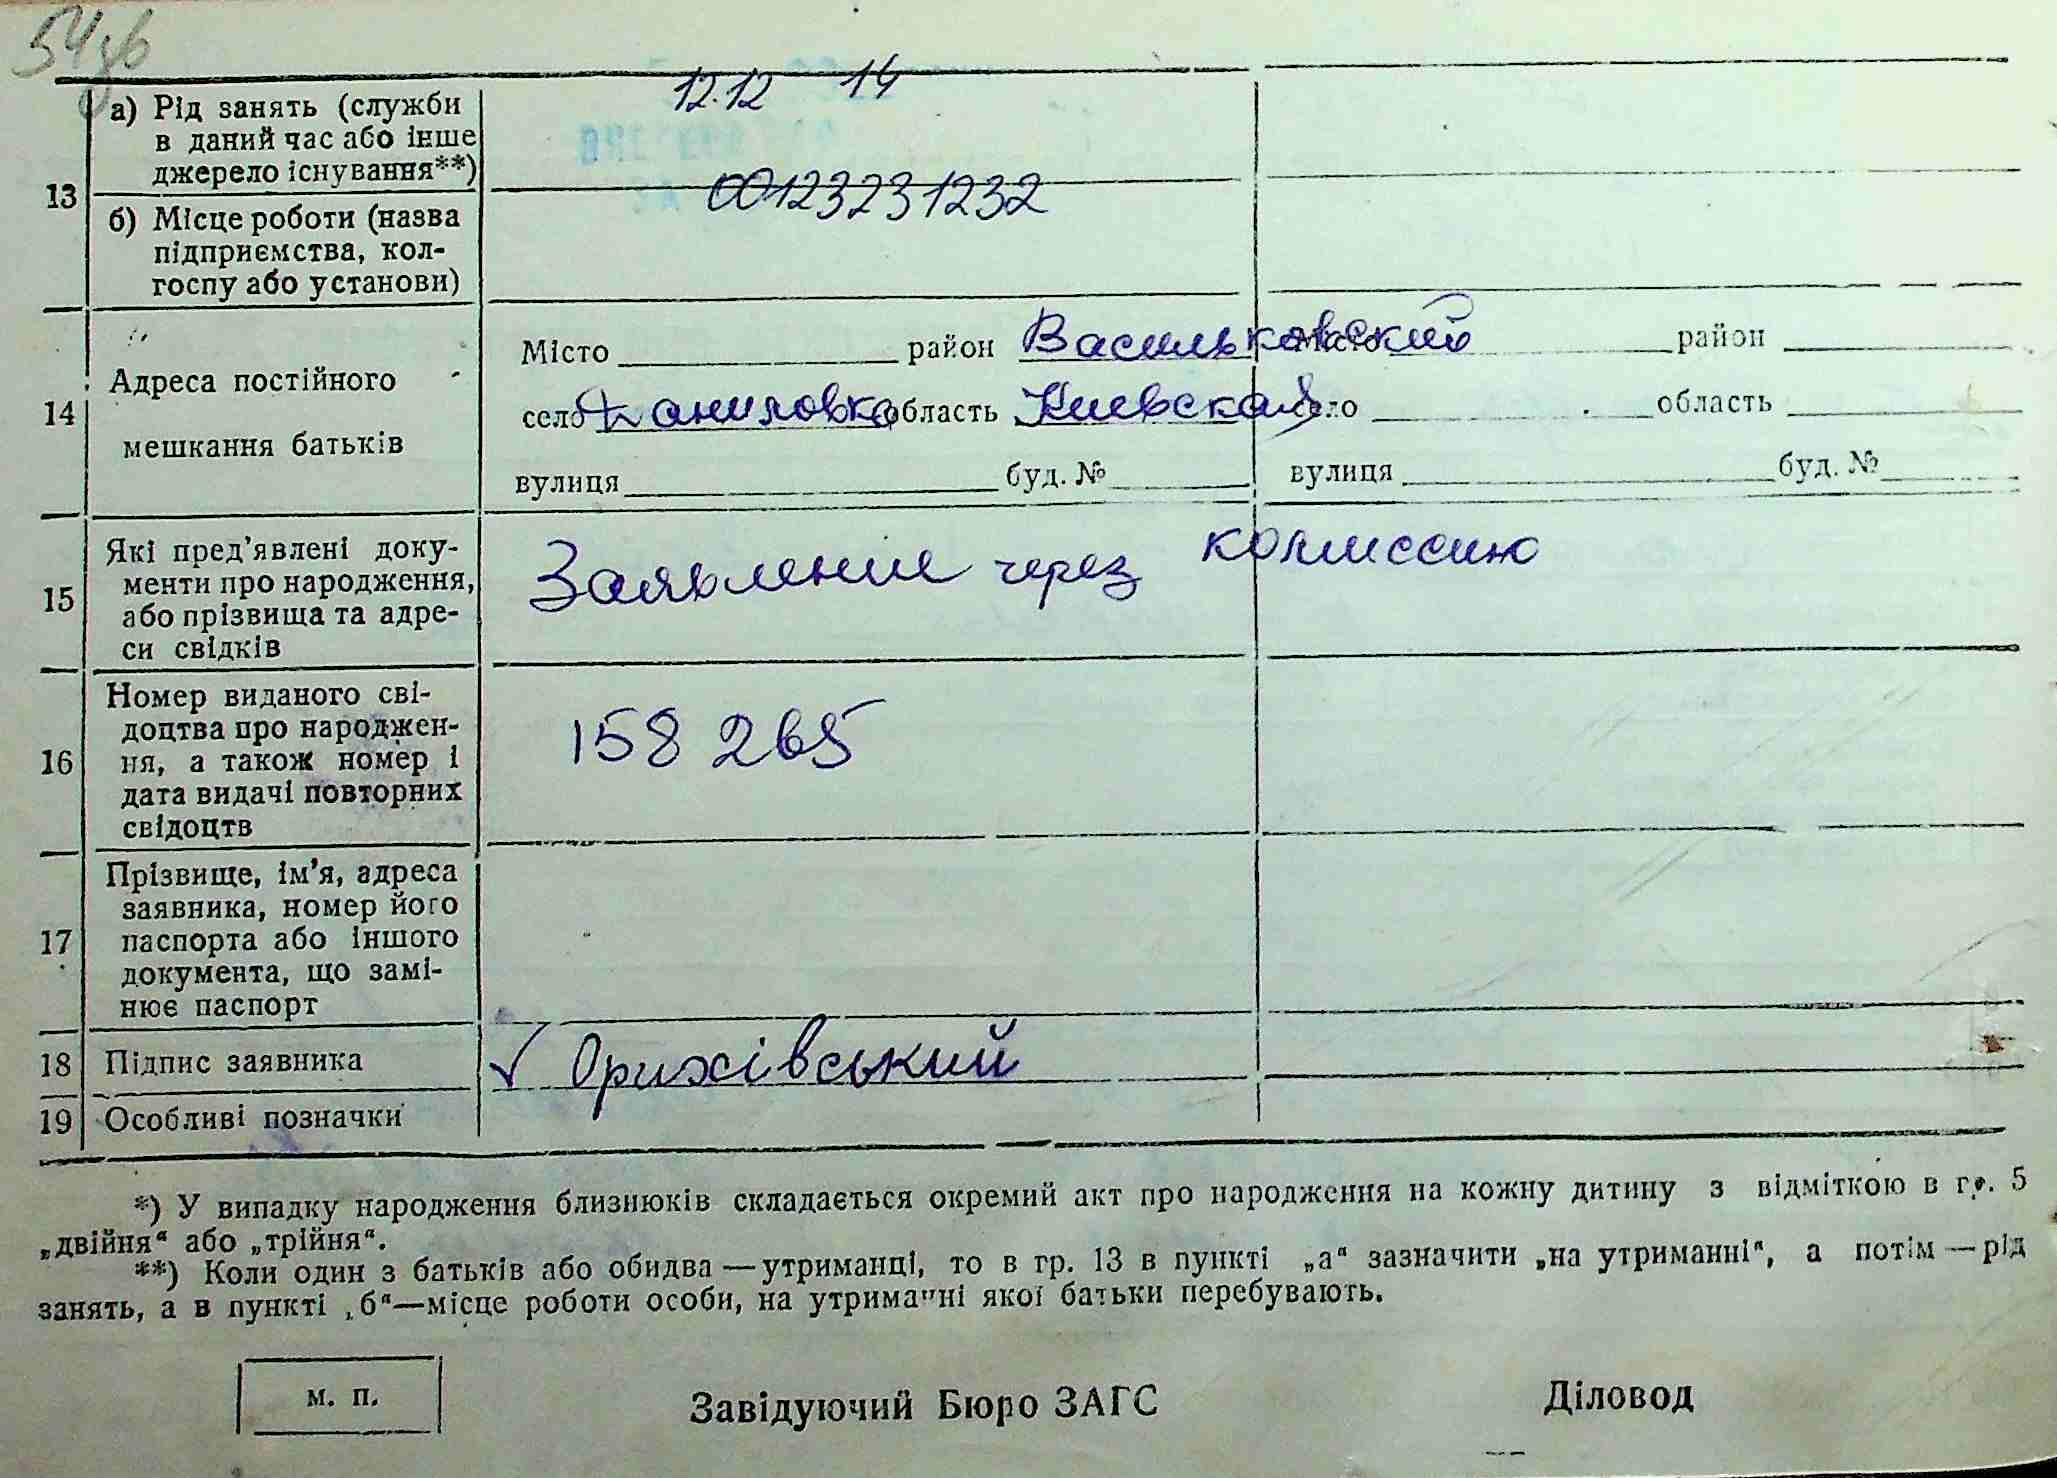 54зв
12.12 14
13
а) Рід занять (служби
в даний час або інше
джерело існування**)
00123231232
б) Місце роботи (назва
підприємства, кол-
госпу або установи)
14
Адреса постійного
мешкання батьків
Місто район Васильковский Місто район
село Даниловка область Киевская село область
вулиця буд. № вулиця буд. №
15
Які пред'явлені доку-
менти про народження,
або прізвища та адре-
си свідків
Заявление через комиссию
16
Номер виданого сві-
доцтва про народжен-
ня, а також номер і
дата видачі повторних
свідоцтв
158 265
17
Прізвище, ім'я, адреса
заявника, номер його
паспорта або іншого
документа, що замі-
нює паспорт
18 Підпис заявника √ Орихівський
19 Особливі позначки
*) У випадку народження близнюків складається окремий акт про народження на кожну дитину з відміткою в гр. 5
„двійня“ або „трійня“.
**) Коли один з батьків або обидва — утриманці, то в гр. 13 в пункті „а“ зазначити „на утриманні“, а потім — рід
занять, а в пункті „б“—місце роботи особи, на утриманні якої батьки перебувають.
м. п. Завідуючий Бюро ЗАГС Діловод